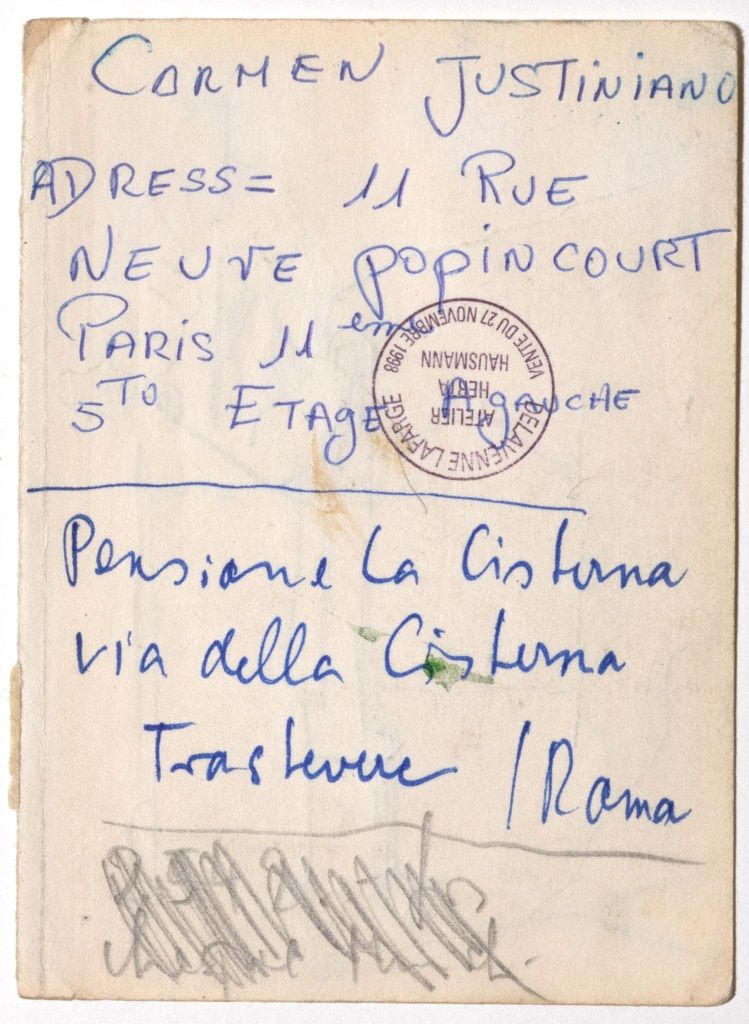 CARMEN JUSTINIANO
ADRESS= 11 RUE
NEUVE POPINCOURT
PARIS 11 em
5TO ETAGE A gAUCHE
VENTE DU 27 NOVEMBRE 1998
DELAVENNE LAFARGE
ATELIER
HERTA
HAUSMANN
Pensione La Cisterna
via della Cisterna
Trastevere / Roma